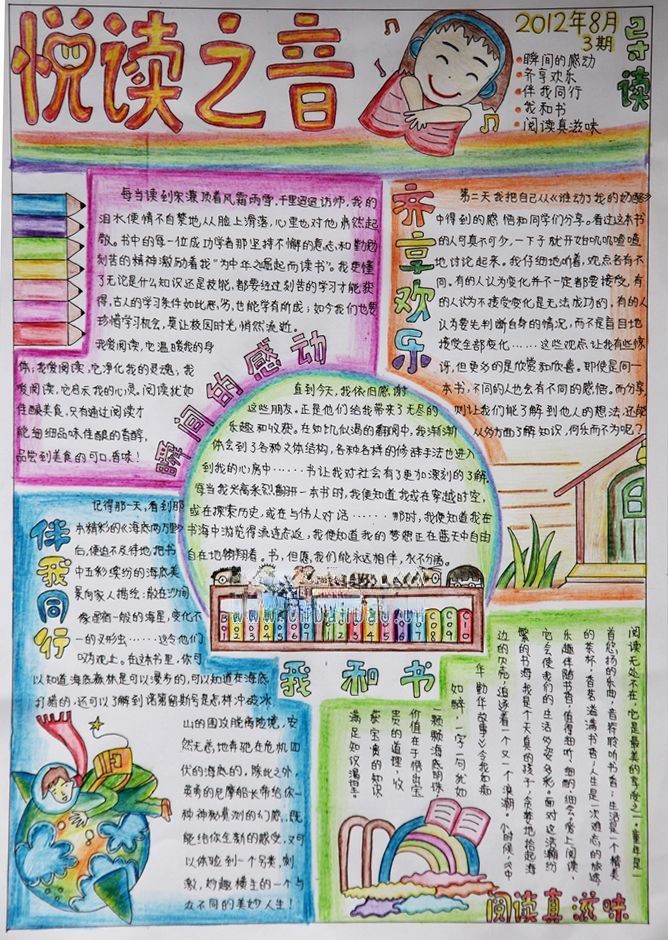 悦读之音
2012年8月
3期
寻读
瞬间的感动
齐享欢乐
伴我同行
我和书
阅读真滋味
每当读到宋濂顶着风霜雨雪，千里迢迢访师，我的
泪水便情不自禁地从脸上滑落，心里也对他肃然起
敬。书中的每一位成功学者那坚持不懈的意志和勤勉
刻苦的精神激励着我“为中华之崛起而读书”。我更懂
了无论是什么知识还是技能，都要经过刻苦的学习才能获
得，古人的学习条件如此恶劣，也能学有所成；如今我们也要
珍惜学习机会，莫让校园时光悄然流逝。
我爱阅读，它温暖我的身
体；我爱阅读，它净化我的灵魂；我
爱阅读，它启天我的心灵。阅读犹如
佳酿美食，只有通过阅读才
能细细品味佳酿的香醇，
品尝到美食的可口，香味！
瞬间的感动
齐享欢乐
第二天我把自己从《谁动了我的奶酪》
中得到的感悟和同学们分享。看过这本书
的人可真不少，一下子就开始叽叽喳喳
地讨论起来。我仔细地听着，观点各有不
同。有的人认为变化并不一定都要接受，有
的人认为不接受变化是无法成功的。有的人
认为要先判断自身的情况，而不是盲目地
接受全部变化……这些观点让我有些惊
讶，但更多的是欣赏和欣喜。即使是同一
本书，不同的人也会有不同的感悟。而分享
则让我们能了解到他人的想法，还能
从多方面了解知识，何乐而不为呢？
直到今天，我依旧感谢
这些朋友。正是他们给我带来了无尽的
乐趣和收获。在如饥似渴的翻阅中，我渐渐
体会到了各种文体结构，各种各样的修辞手法也进入
到我的心房中……书让我对社会有了更加深刻的了解。
每当我兴高采烈翻开一本书时，我便知道我或在穿越时空，
或在探索历史，或在与伟人对话……那时，我便知道我在
书海中游览得流连忘返，我便知道我的梦想正在蓝天中自由
自在地翱翔着。书，但愿我们能永远相伴，永不分离。
我和书
伴我同行
记得那一天，看到那
本精彩的《海底两万里》
后，便迫不及待地把书
中五彩缤纷的海底美
景向家人描绘：散在沙间
像星宿一般的海星，变化不
一的叉形虫……这令他们
叹为观止。在这本书里，你可
以知道海底森林是可以漫步的，可以知道在海底
打猎的，还可以了解到诺第留斯号是怎样冲破冰
山的围攻脱离险境，安
然无恙地奔驰在危机四
伏的海底的。除此之外，
英勇的尼摩船长带给你一
种神秘莫测的幻感，既
能给你全新的感受，又可
以体验到一个另类，刺
激，妙趣横生的一个与
众不同的美妙人生！
阅读无处不在，它是最美的享受之一。童年是一
首悠扬的乐曲，音符聆听书音；生活是一个精美
的茶杯，香茗溢满书香；人生是一次难忘的旅途，
乐趣伴随书香，值得细听，细闻，细会。爱上阅读，
它会使我们的生活多姿多彩。面对这浩瀚纷
繁的书海，我是个天真的孩子，贪婪地拾起海
边的贝壳，追逐着一个又一个浪潮。小时候，《中
华勤学故事》令我如痴
如醉，一字一句犹如
一颗颗海底明珠，
价值在于悟出宝
贵的道理，收
获宝藏的知识
满足知识渴望。
阅读真滋味